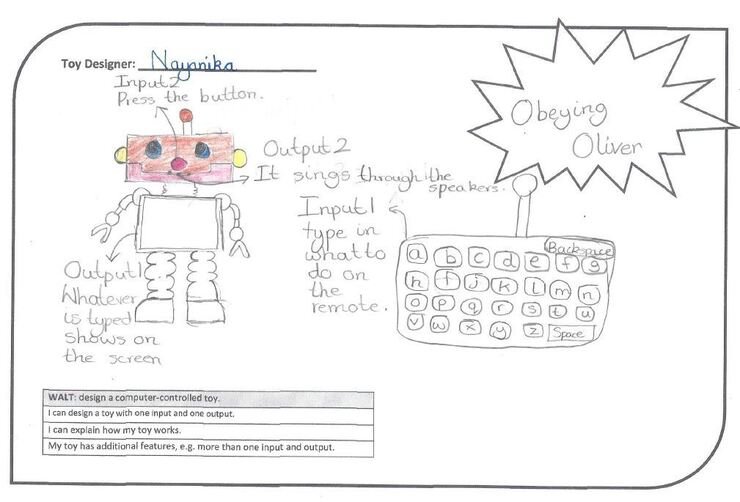 Toy Designer: Naynnika
Input 2
Press the button.
Obeying
Oliver
Output 2
It sings through the
speakers.
Input 1
type in
what to
do on
the
remote.
Output 1
Whatever
is typed
shows on
the screen
Backspace
a b c d e f g
h i j k l m n
o p q r s t u
v w x y z Space
WALT: design a computer-controlled toy.
I can design a toy with one input and one output.
I can explain how my toy works.
My toy has additional features, e.g. more than one input and output.